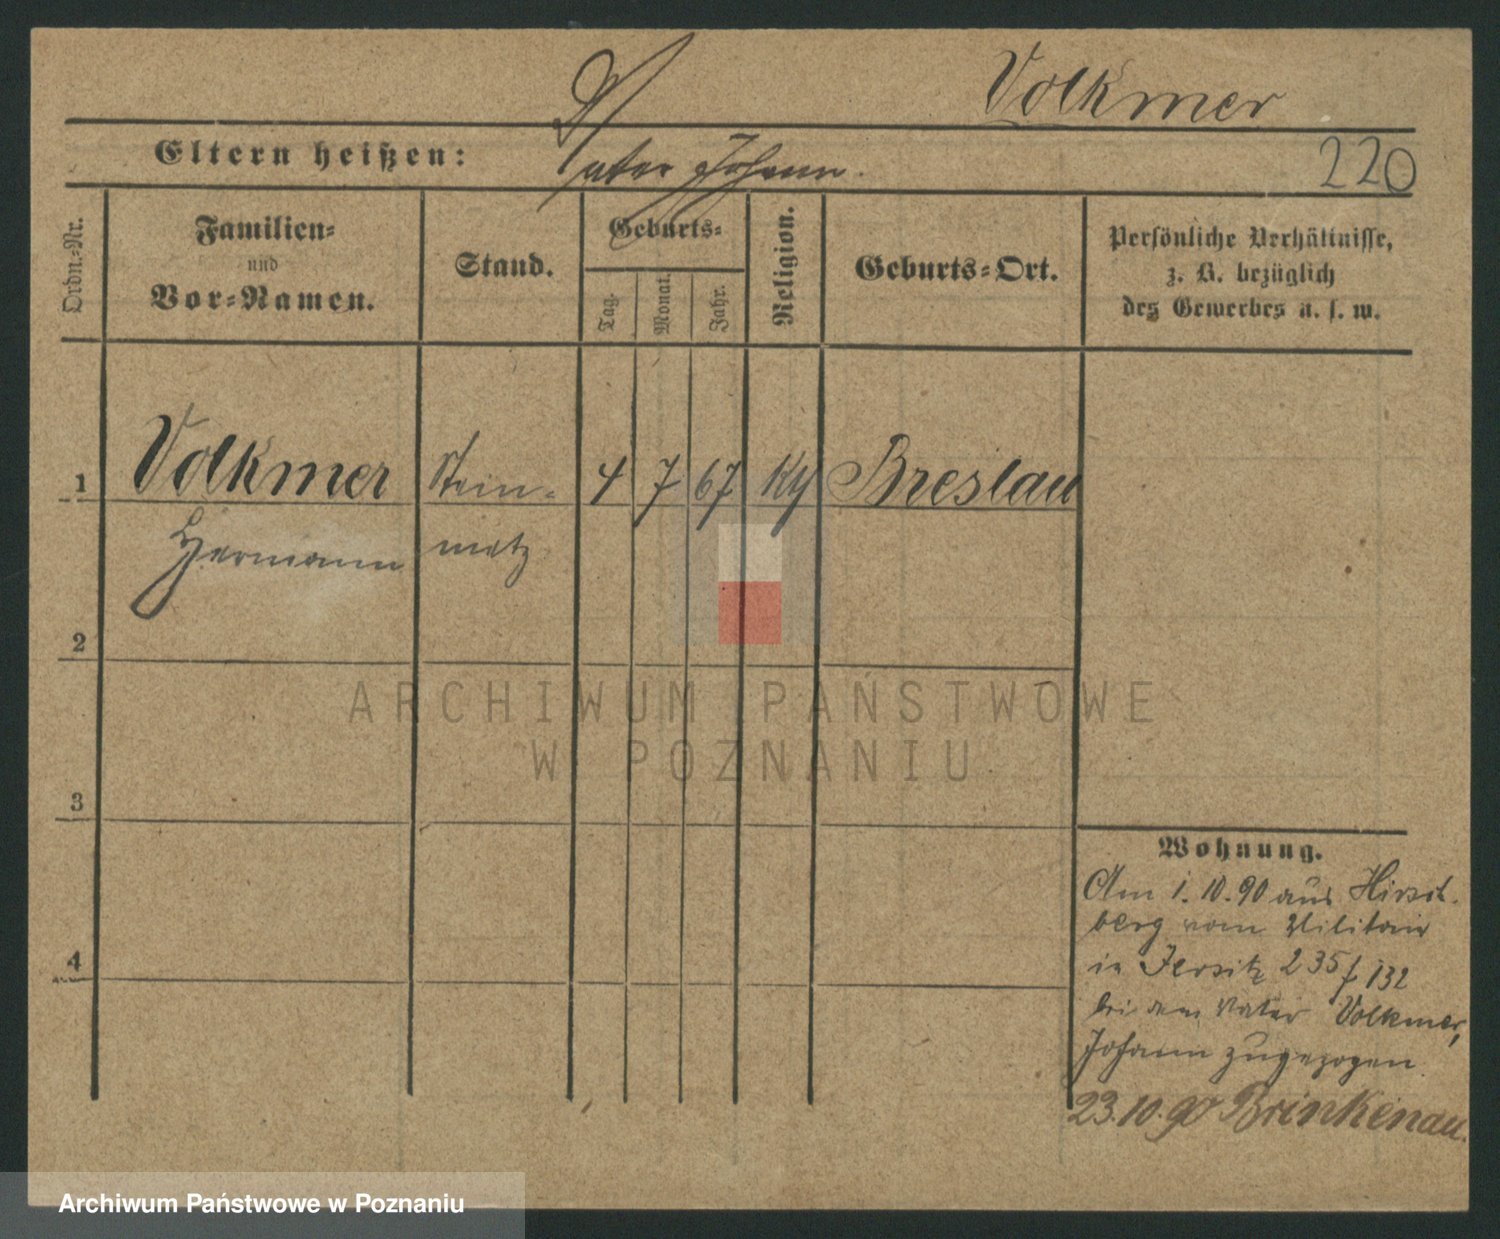 Volkmer
Eltern heißen: Vater Johann.
220
Ordn.-Nr.
Familien-
und
Vor-Namen.
Stand.
Geburts-
Tag.
Monat.
Jahr.
Religion.
Geburts-Ort.
Persönliche Verhältnisse,
z. B. bezüglich
des Gewerbes u. s. w.
1 Volkmer Stein- 4 7 67 Breslau
Hermann metz
2
3
4
Wohnung.
Am 1.10.90 aus Hirsch-
berg vom Militair
in Jersitz 235/132
bei dem Vater Volkmer,
Johann zugezogen
23.10.90 Brinkenau.
ARCHIWUM PAŃSTWOWE
W POZNANIU
Archiwum Państwowe w Poznaniu